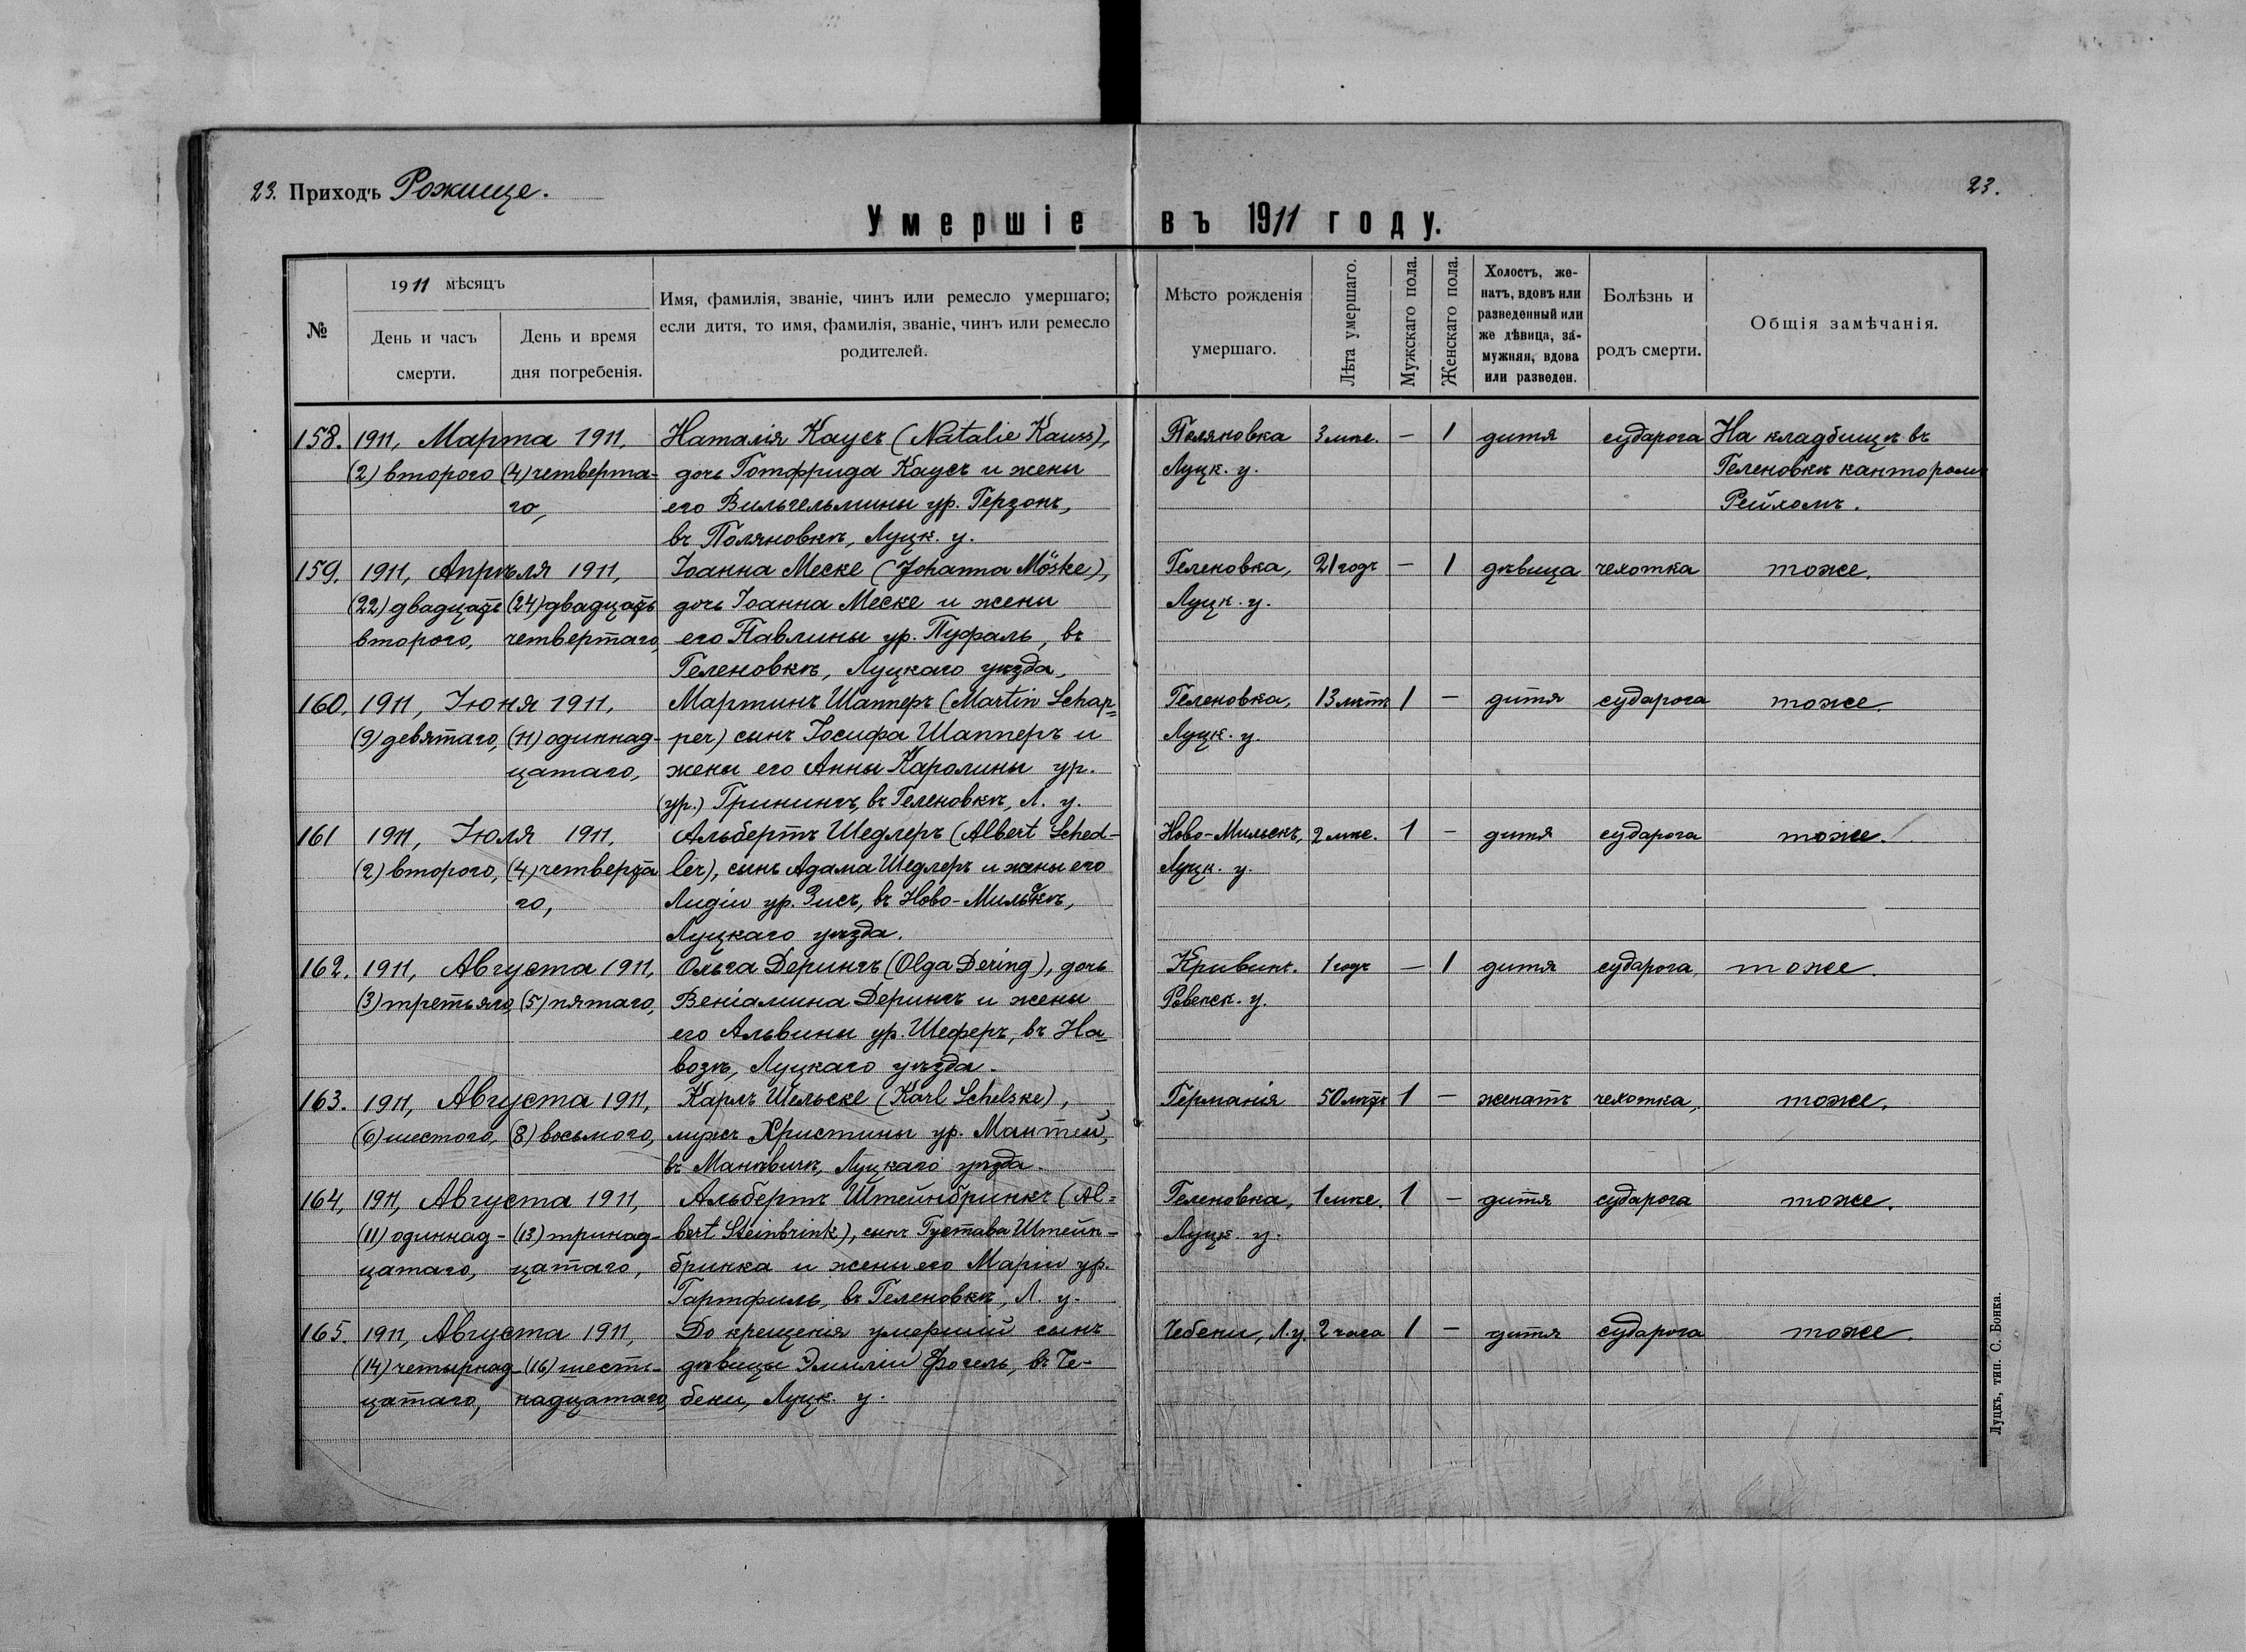 23. Приходъ Рожище.
23.
Умершіе въ 1911 году.
№
1911 мѣсяцъ
День и часъ смерти.
День и время дня погребенія.
Имя, фамилія, званіе, чинъ или ремесло умершаго;
если дитя, то имя, фамилія, званіе, чинъ или ремесло
родителей.
Мѣсто рожденія
умершаго.
Лѣта умершаго.
Мужскаго пола.
Женскаго пола.
Холостъ, же-
натъ, вдовъ или
разведенный или
же дѣвица, за-
мужняя, вдова
или разведен.
Болѣзнь и
родъ смерти.
Общія замѣчанія.
158. 1911, Марта 1911, Наталія Каусъ (Natalie Kauss), Поляновка 3 мѣс. — 1 дитя сударога На кладбищѣ въ
(2) второго (4) четверта- дочь Готфрида Каусъ и жены Луцк. у. Геленовкѣ канторомъ
го, его Вильгельмины ур. Герзонъ, Рейхомъ.
въ Поляновкѣ, Луцк. у.
159. 1911, Апрѣля 1911, Іоанна Меске (Johanna Möske), Геленовка, 21 годъ — 1 дѣвица чехотка тоже.
(22) двадцать (24) двадцать дочь Іоанна Меске и жены Луцк. у.
второго, четвертаго, его Павлины ур. Пуфаль, въ
Геленовкѣ, Луцкаго уѣзда,
160. 1911, Іюня 1911, Мартинъ Шапперъ (Martin Schap- Геленовка, 13 лѣтъ 1 — дитя сударога тоже.
(9) девятаго, (11) одиннад- per) сынъ Іосифа Шапперъ и Луцк. у.
цатаго, жены его Анны Каролины ур.
(ур.) Грининъ, въ Геленовкѣ, Л. у.
161 1911, Іюля 1911, Альбертъ Шедлеръ (Albert Sched- Ново-Мильскъ, 2 мѣс. 1 — дитя сударога тоже.
(2) второго, (4) четверта ler), сынъ Адама Шедлеръ и жены его Луцк. у.
го, Лидіи ур. Зисъ, въ Ново-Мильскѣ,
Луцкаго уѣзда.
162. 1911, Августа 1911, Ольга Дерингъ (Olga Dering), дочь Кривинъ. 1 годъ — 1 дитя сударога, тоже.
(3) третьяго, (5) пятаго, Веніамина Дерингъ и жены Ровенск. у.
его Альвины ур. Шеферъ, въ На-
возѣ, Луцкаго уѣзда.
163. 1911, Августа 1911, Карлъ Шельске (Karl Schelske), Германія 50 лѣтъ 1 — женатъ чехотка, тоже.
(6) шестого, (8) восьмого, мужъ Христины ур. Мантей,
въ Маневичѣ, Луцкаго уѣзда.
164, 1911, Августа 1911, Альбертъ Штейнбринкъ (Al- Геленовка, 1 мѣс. 1 — дитя сударога тоже.
(11) одиннад- (13) тринад- bert Steinbrink), сынъ Густава Штейн- Луцк. у.
цатаго, цатаго, бринка и жены его Маріи ур.
Гартфиль, въ Геленовкѣ, Л. у.
165. 1911, Августа 1911, До крещенія умершій сынъ Чебени, Л.у. 2 часа 1 — дитя сударога тоже.
(14) четырнад- (16) шест- дѣвицы Эмиліи Фогель, въ Че-
цатаго, надцатаго, бени, Луцк. у.
Луцкъ, тип. С. Бонка.